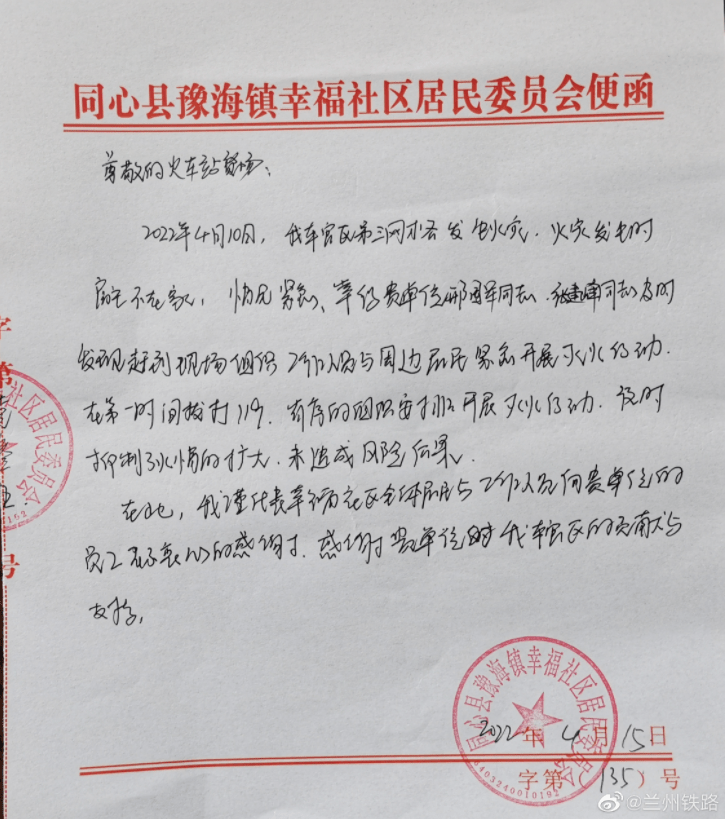 同心县豫海镇幸福社区居民委员会便函
尊敬的火车站
2022年4月10日，我辖区第三网格发生火灾．火灾发生时
房主不在家，情况紧急、幸得贵单位 同志、 同志及时
发现赶到现场组织工作人员与周边居民紧急开展灭火行动．
在第一时间拨打119．有序的组织 开展灭火行动．及时
抑制了火情的扩大．未造成风险后果。
在此，我谨代表幸福社区全体居民与工作人员向贵单位的
员工表示衷心的感谢！感谢贵单位对我辖区的贡献与
支持。
2022年4月15日
字第（135）号
同心县豫海镇幸福社区居民委员会
6403240010192
字第
社区居民委员会
号
@兰州铁路